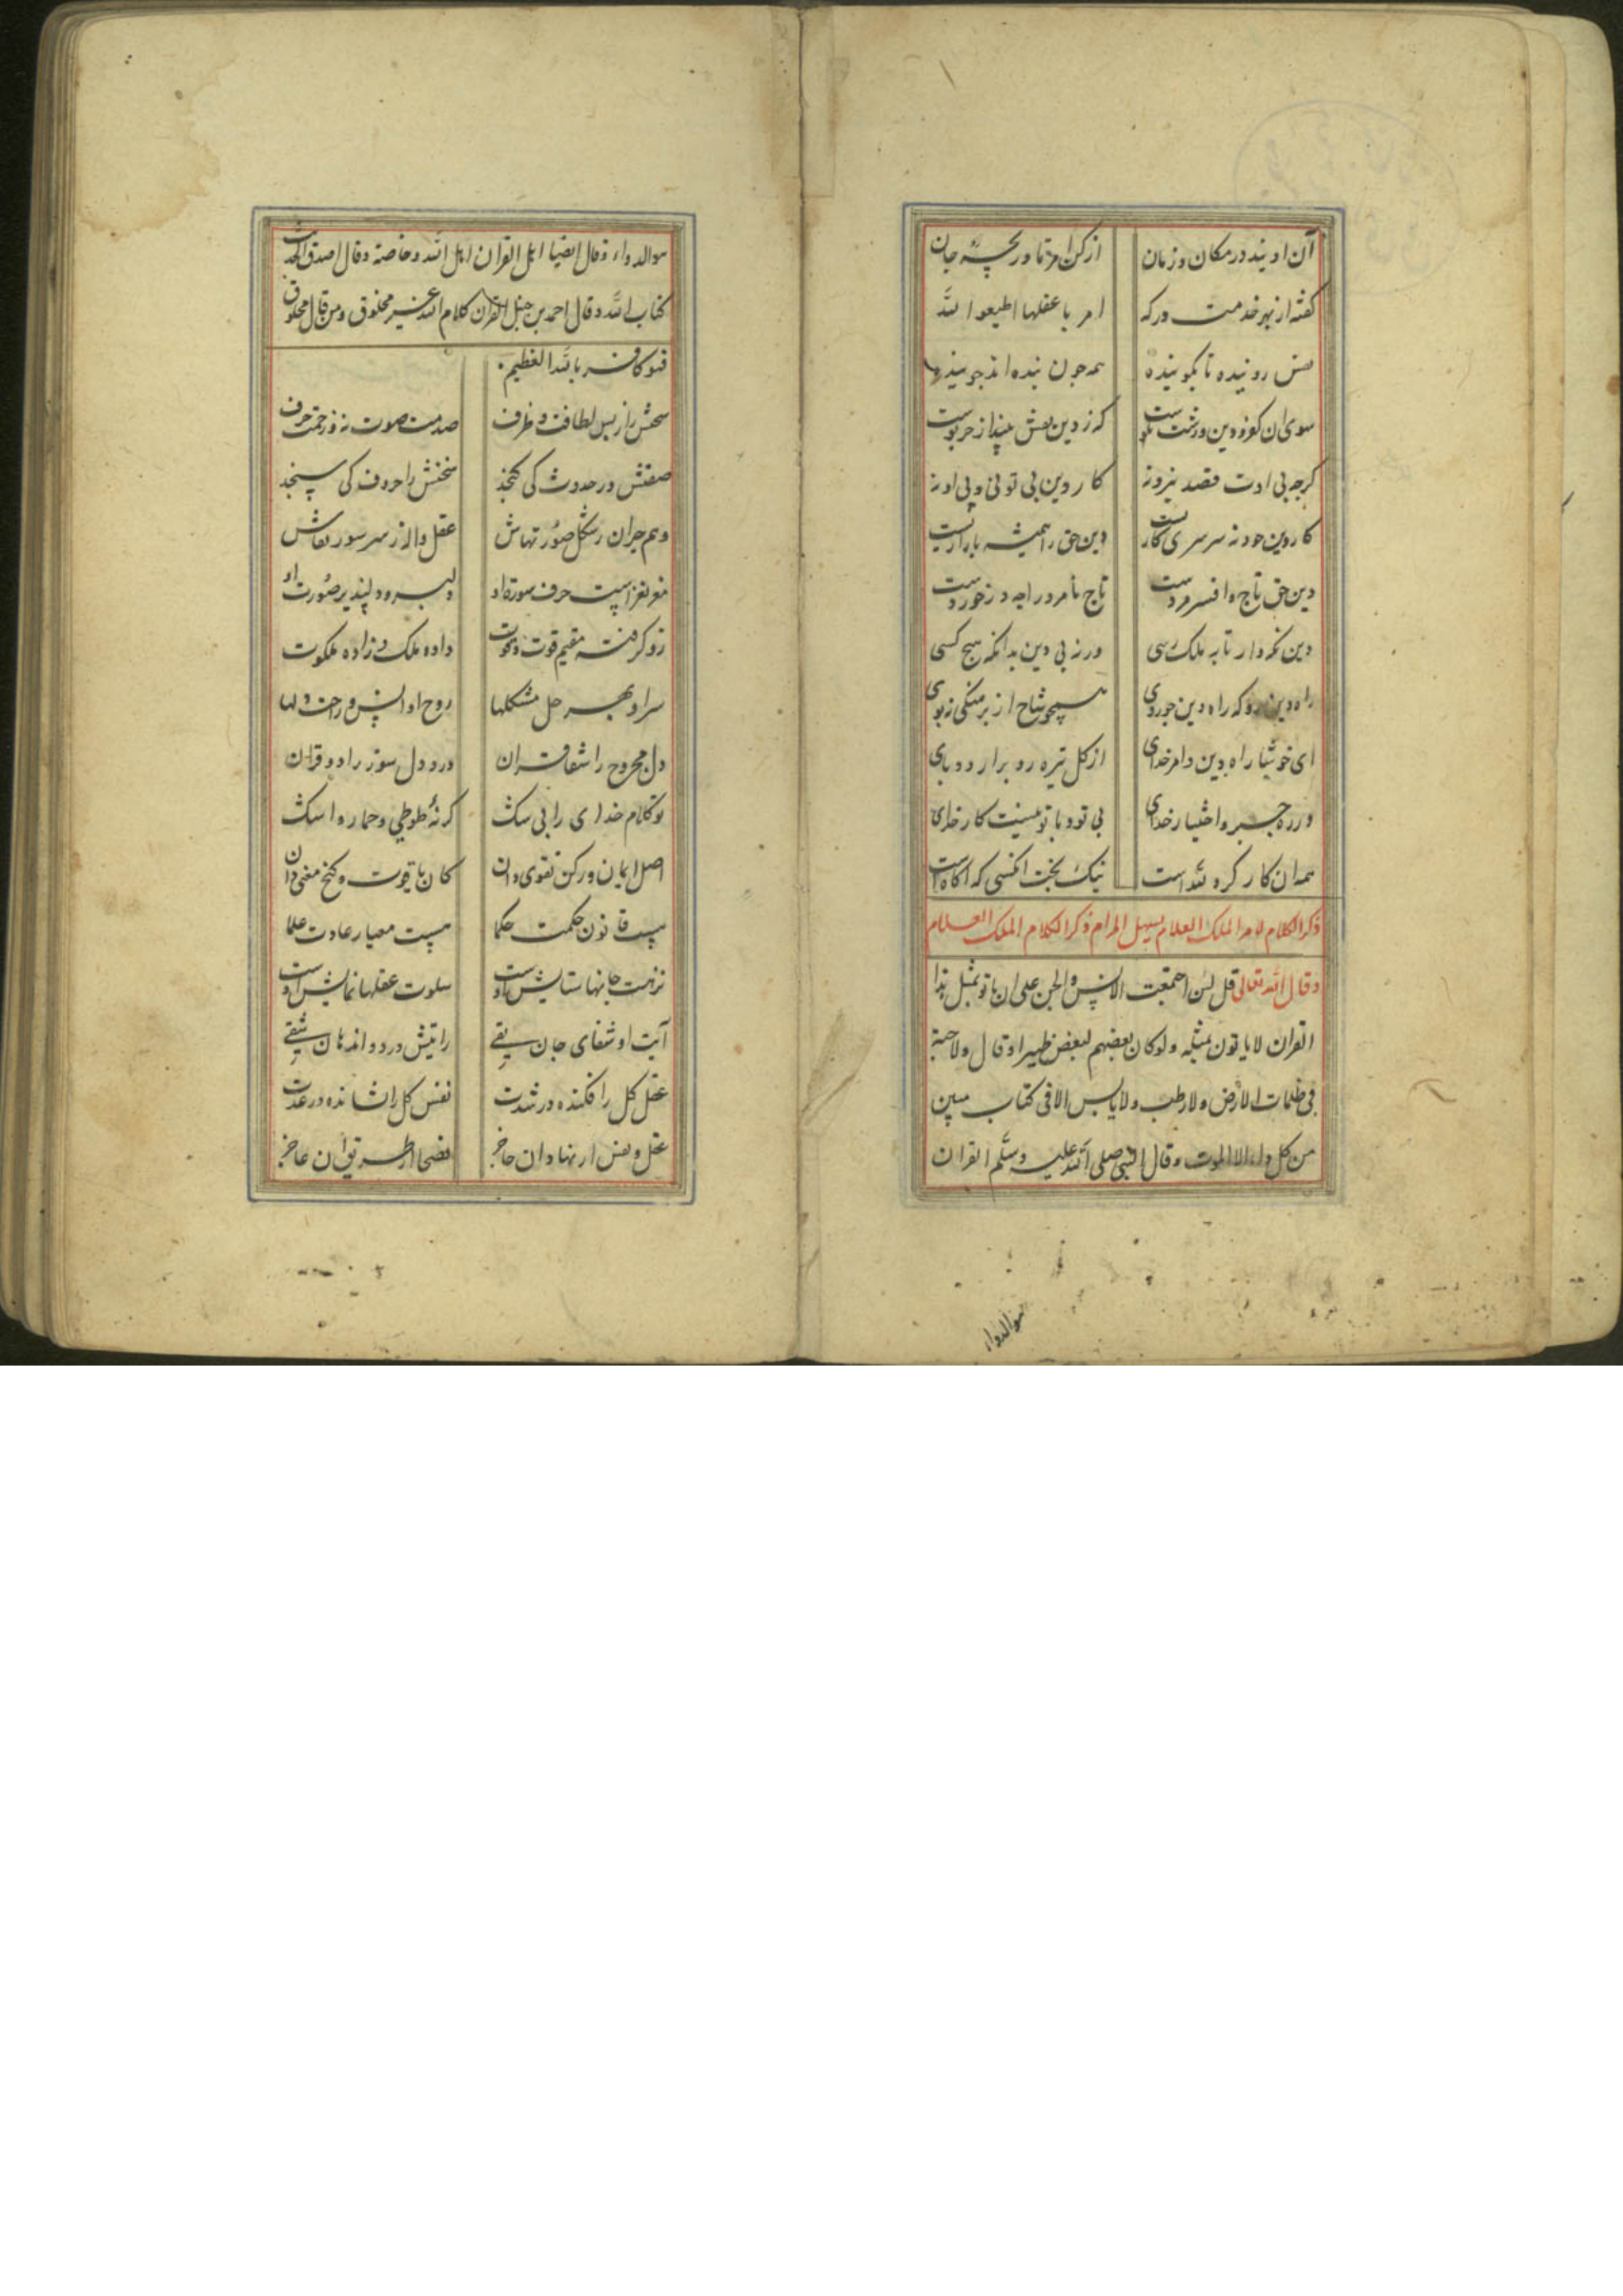 آن اویند در مکان و زمان از کن امر تا دریچه جان
گفته از بهر خدمت درکه امر با عقلها اطیعوا الله
نفس روینده تا بگوینده همه جون بنده اند جوینده
سوی ان کفر و دین و زشت نکوست که ز دین نقش بیند از خر پوست
کرجه بی ادت قصد نیرو نه کار دین بی تو نی و بی او نه
کار دین خود نه سرسری کاریست دین حق را همیشه بازاریست
دین حق تاج و افسر مردست تاج نامرد را جه در خوردست
دین نکه دار تا به ملک رسی ورنه بی دین بدانکه هیج کسی
راه دین رو که راه دین جو روی همجو شاخ از برهنکی نبوی
ای خوشا راه دین و امر خدای از کل تیره رو برار دو پای
ورزه جبر و اختیار خدای بی تو و با تو نیست کار خدای
همه ان کار کرد الله است نیک بخت انکسی که اکاه است
ذکر الکلام لامر الملک العلام یسهل المرام ذکر الکلام الملک العلام
و قال الله تعالی قل لئن اجتمعت الانس و الجن علی ان یاتو بمثل هذا
القران لا یاتون بمثله و لو کان بعضهم لبعض ظهیرا و قال و لا حبة
فی ظلمات الارض و لا رطب و لا یابس الا فی کتاب مبین
من کل داء الا الموت و قال النبی صلی الله علیه و سلم القران
هوالدواء
هو الدواء و قال ایضا اهل القران اهل الله و خاصته و قال اصدق الحدیث
کتاب الله و قال احمد بن حنبل القران کلام الله غیر مخلوق و من قال مخلوق
فهو کافر بالله العظیم
سخنش را ز بس لطافت و ظرف صدمت صوت نه و زحمت حرف
صفتش در حدوث کی کنجد سخنش را حروف کی سنجد
وهم حیران ز شکل صورتهاش عقل واله ز سر سورتهاش
مغز نغز است حرف سورة او دلبر و دلپذیر صورت او
زو کرفته مقیم قوت و قوت داده ملک و زاده ملکوت
سر او بهر حل مشکلها روح او انس و راحت دلها
دل مجروح را شفا قران درد دل سوز را دوا قران
تو کلام خدای را بی شک کر نه طوطی و حمار و اشک
اصل ایمان و رکن تقوی دان کان یاقوت و کنج معنی دان
هست قانون حکمت حکما هست معیار عادت علما
نزهت جانها ستایش اوست سلوت عقلها نمایش اوست
آیت او شفای جان تقی رایتش درد و اندهان شقی
عقل کل را فکنده در شدت نفس کل را نشانده در عدت
عقل و نفس از نهاد ان عاجز فصحا از طریق ان عاجز